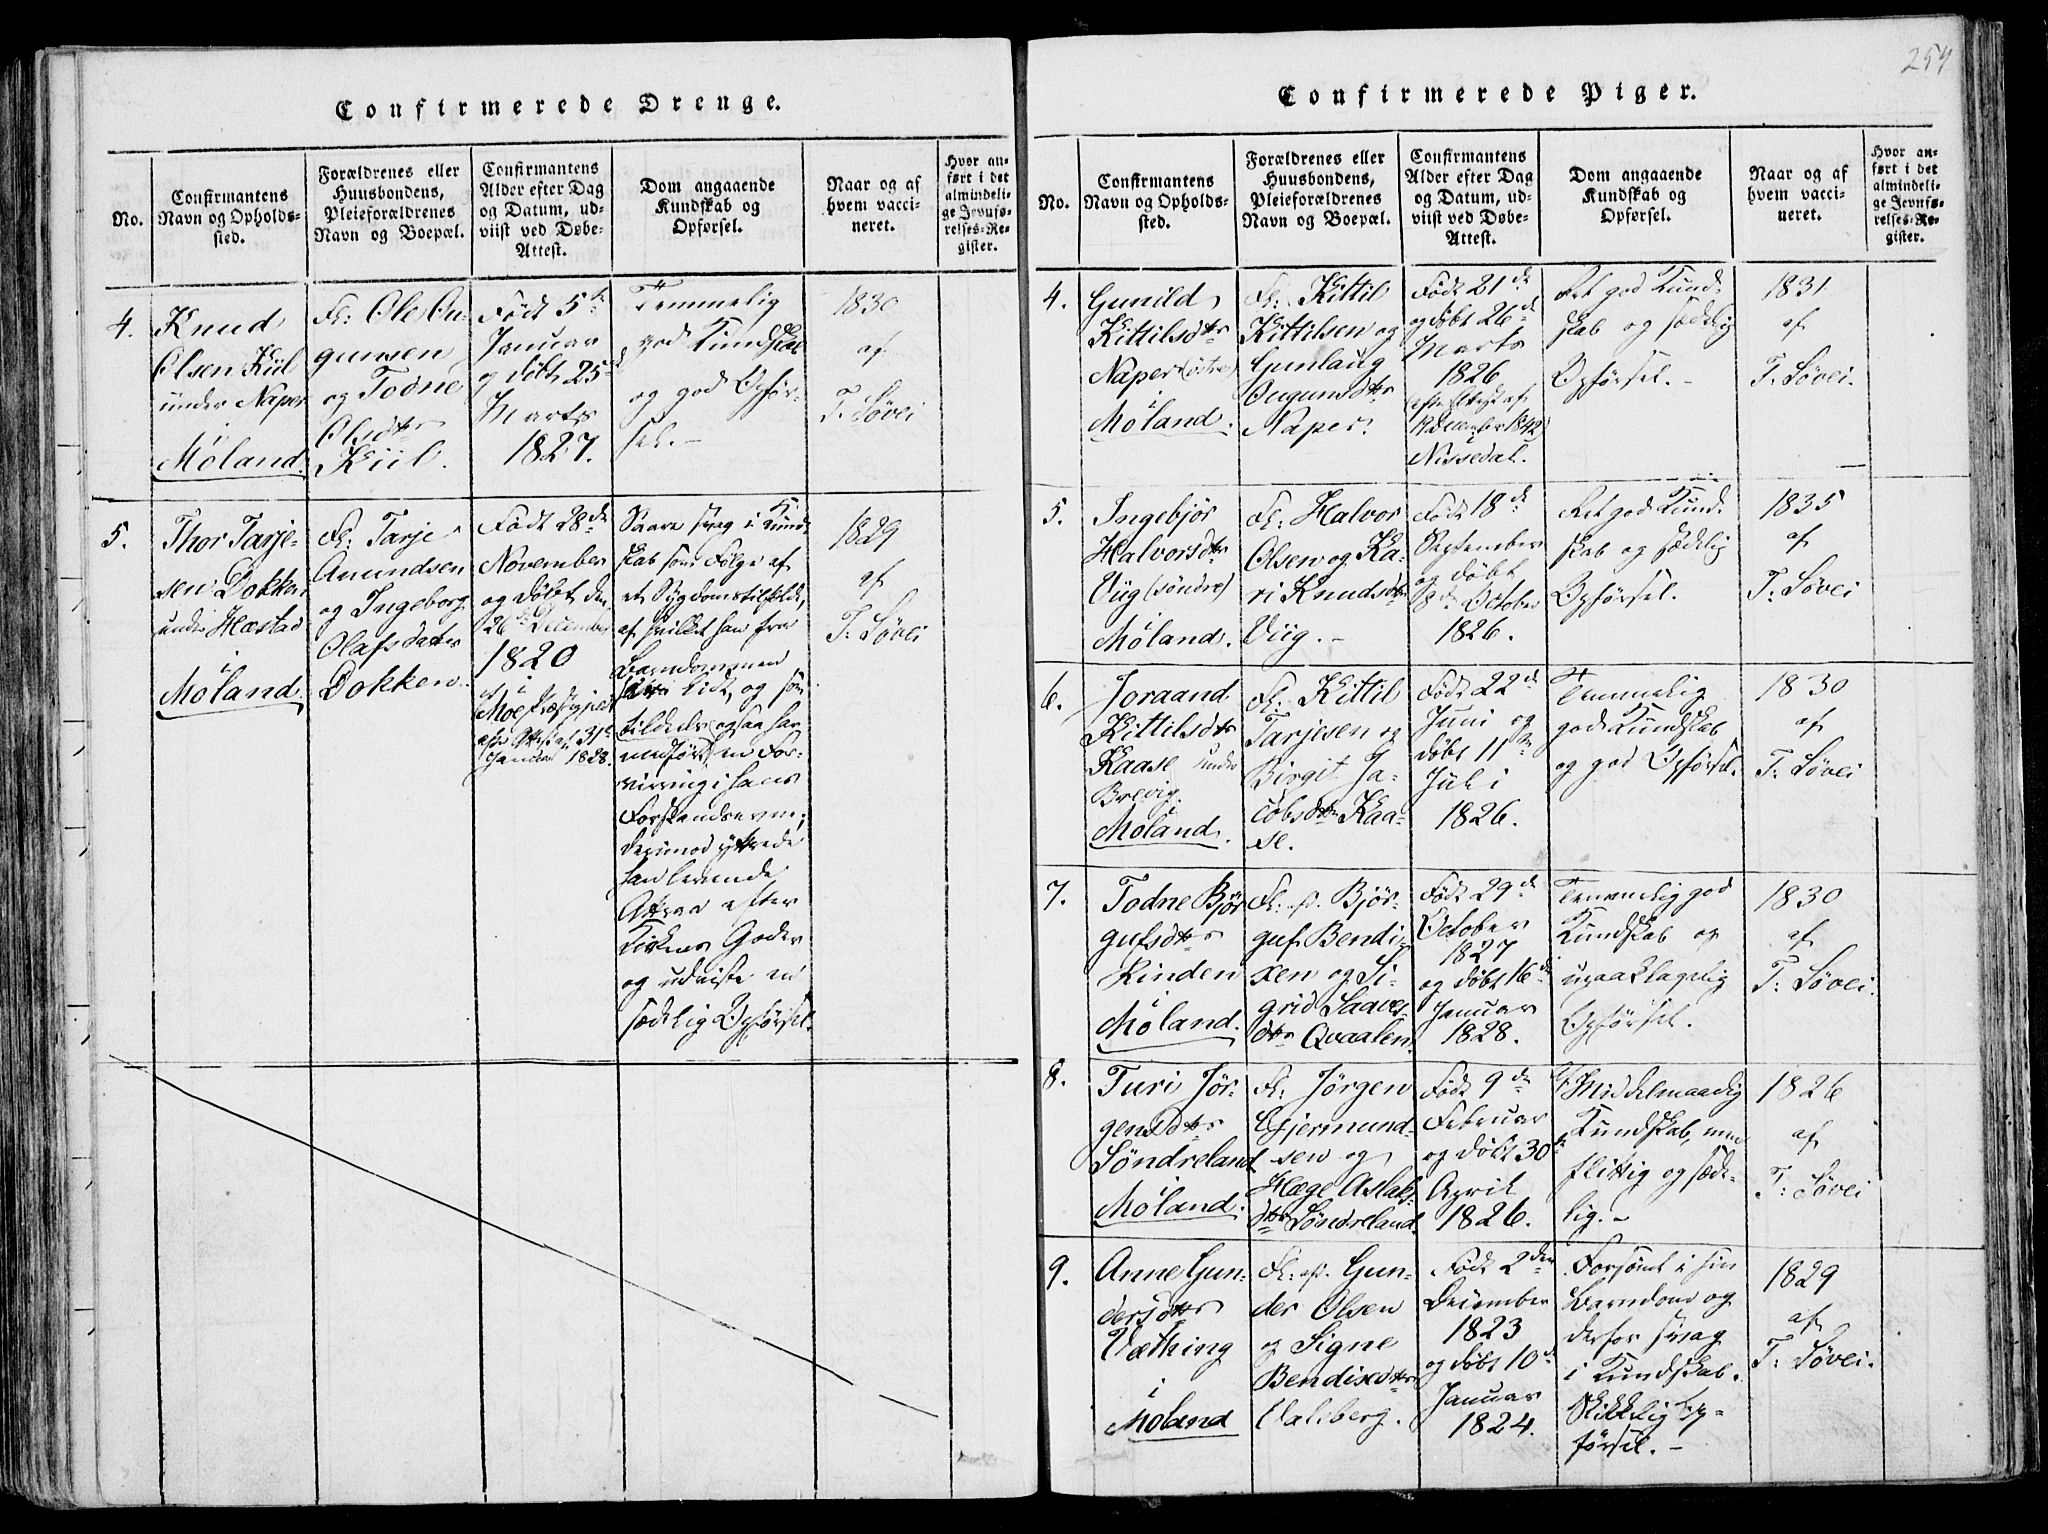 254
Confirmerede Drenge.
No.
Confirmantens
Navn og Opholds-
sted.
Forældrenes eller
Huusbondens,
Pleieforældrenes
Navn og Boepæl.
Confirmantens
Alder efter Dag
og Datum, ud-
viist ved Døbe-
Attest.
Dom angaaende
Kundskab og
Opførsel.
Naar og af
hvem vacci-
neret.
Hvor an-
ført i det
almindeli-
ge Jevnfø-
relses-Re-
gister.
4.
Knud
Olsen Kiil
under Naper
i
Moland.
F: Ole On-
gunsen
og Todne
Olsdtr
Kiil.
Født 5te
Januar
og døbt 25de
Marts
1827.
Temmelig
god Kundskab
og god Opfør-
sel. –
1830
af
T: Søvei
5.
Thor Tarje-
sen Dokken
under Hæstad
i
Moland.
F: Tarje
Anundsen
og Ingeborg
Olafsdatter
Dokken.
Født 28de
November
og døbt den
26de December
1820
i
Moe Præstegjeld
efter Attest af 31te
Januar 1828.
Saare svag i Kund-
skab som Følge af
et Sygdomstilfælde,
af hvilket han fra
Barndommen
har lidt, og som
tildels ogsaa har
medført en For-
virring i hans
Forstandsevne;
derimod yttrede
han levende
Attraa efter
Kirkens Goder
og udviste en
sædelig Opførsel.
1829
af
T: Søvei
Confirmerede Piger.
No.
Confirmantens
Navn og Opholds-
sted.
Forældrenes eller
Huusbondens,
Pleieforældrenes
Navn og Boepæl.
Confirmantens
Alder efter Dag
og Datum, ud-
viist ved Døbe-
Attest.
Dom angaaende
Kundskab og
Opførsel.
Naar og af
hvem vacci-
neret.
Hvor an-
ført i det
almindeli-
ge Jevnfø-
relses-Re-
gister.
4.
Gunild
Kittilsdtr
Naper (østre)
i
Moland.
F: Kittil
Kittilsen og
Gunlaug
Ougunsdtr
Naper.
Født 21de
og døbt 26de
Marts
1826
efter Attest af
December 1842
Nissedal.
Ret god Kund-
skab og sædelig
Opførsel. –
1831
af
T: Søvei.
5.
Ingebjør
Halvorsdtr
Viig (søndre)
i
Moland.
F: Halvor
Olsen og Ka-
ri Knudsdtr
Viig. –
Født 18de
September
og døbt
8de October
1826.
Ret god Kund-
skab og sædelig
Opførsel.
1835
af
T: Søvei
6.
Joraand
Kittilsdtr
Kaase under
Brevig
i
Moland.
F: Kittil
Tarjesen og
Birgit Ja-
cobsdtr Kaa-
se.
Født 22de
Juni og
døbt 11te
Juli
1826.
Temmelig
god Kundskab
og god Opførsel.
1830
af
T: Søvei
7.
Todne Bjør
gufsdtr
Rinden
i
Moland.
F: afd. Bjør-
guf Bendi-
xen og Si-
grid Saaves-
dtr Qvaalen.
Født 29de
October
1827
og døbt 16de
Januar
1828.
Temmelig god
Kundskab og
upaaklagelig
Opførsel.
1830
af
T: Søvei.
8.
Turi Jør-
gensdtr
Søndreland
i
Moland.
F: Jørgen
Gjermund-
sen og
Hæge Aslaks-
dtr Søndreland.
Født 9de
Februar
og døbt 30te
April
1826.
Middelmaadig
Kundskab, men
flittig og sæde-
lig. –
1826
af
T: Søvei
9.
Anne Gun-
dersdtr
Væthing
i
Moland
F: afd. Gun-
der Olsen
og Signe
Bendixdtr
Valsberg.
Født 2den
December
1823
og døbt 10de
Januar
1824.
Forsømt i sin
Barndom og
derfor svag
i Kundskab.
Skikkelig Op-
førsel. –
1829
af
T: Søvei.